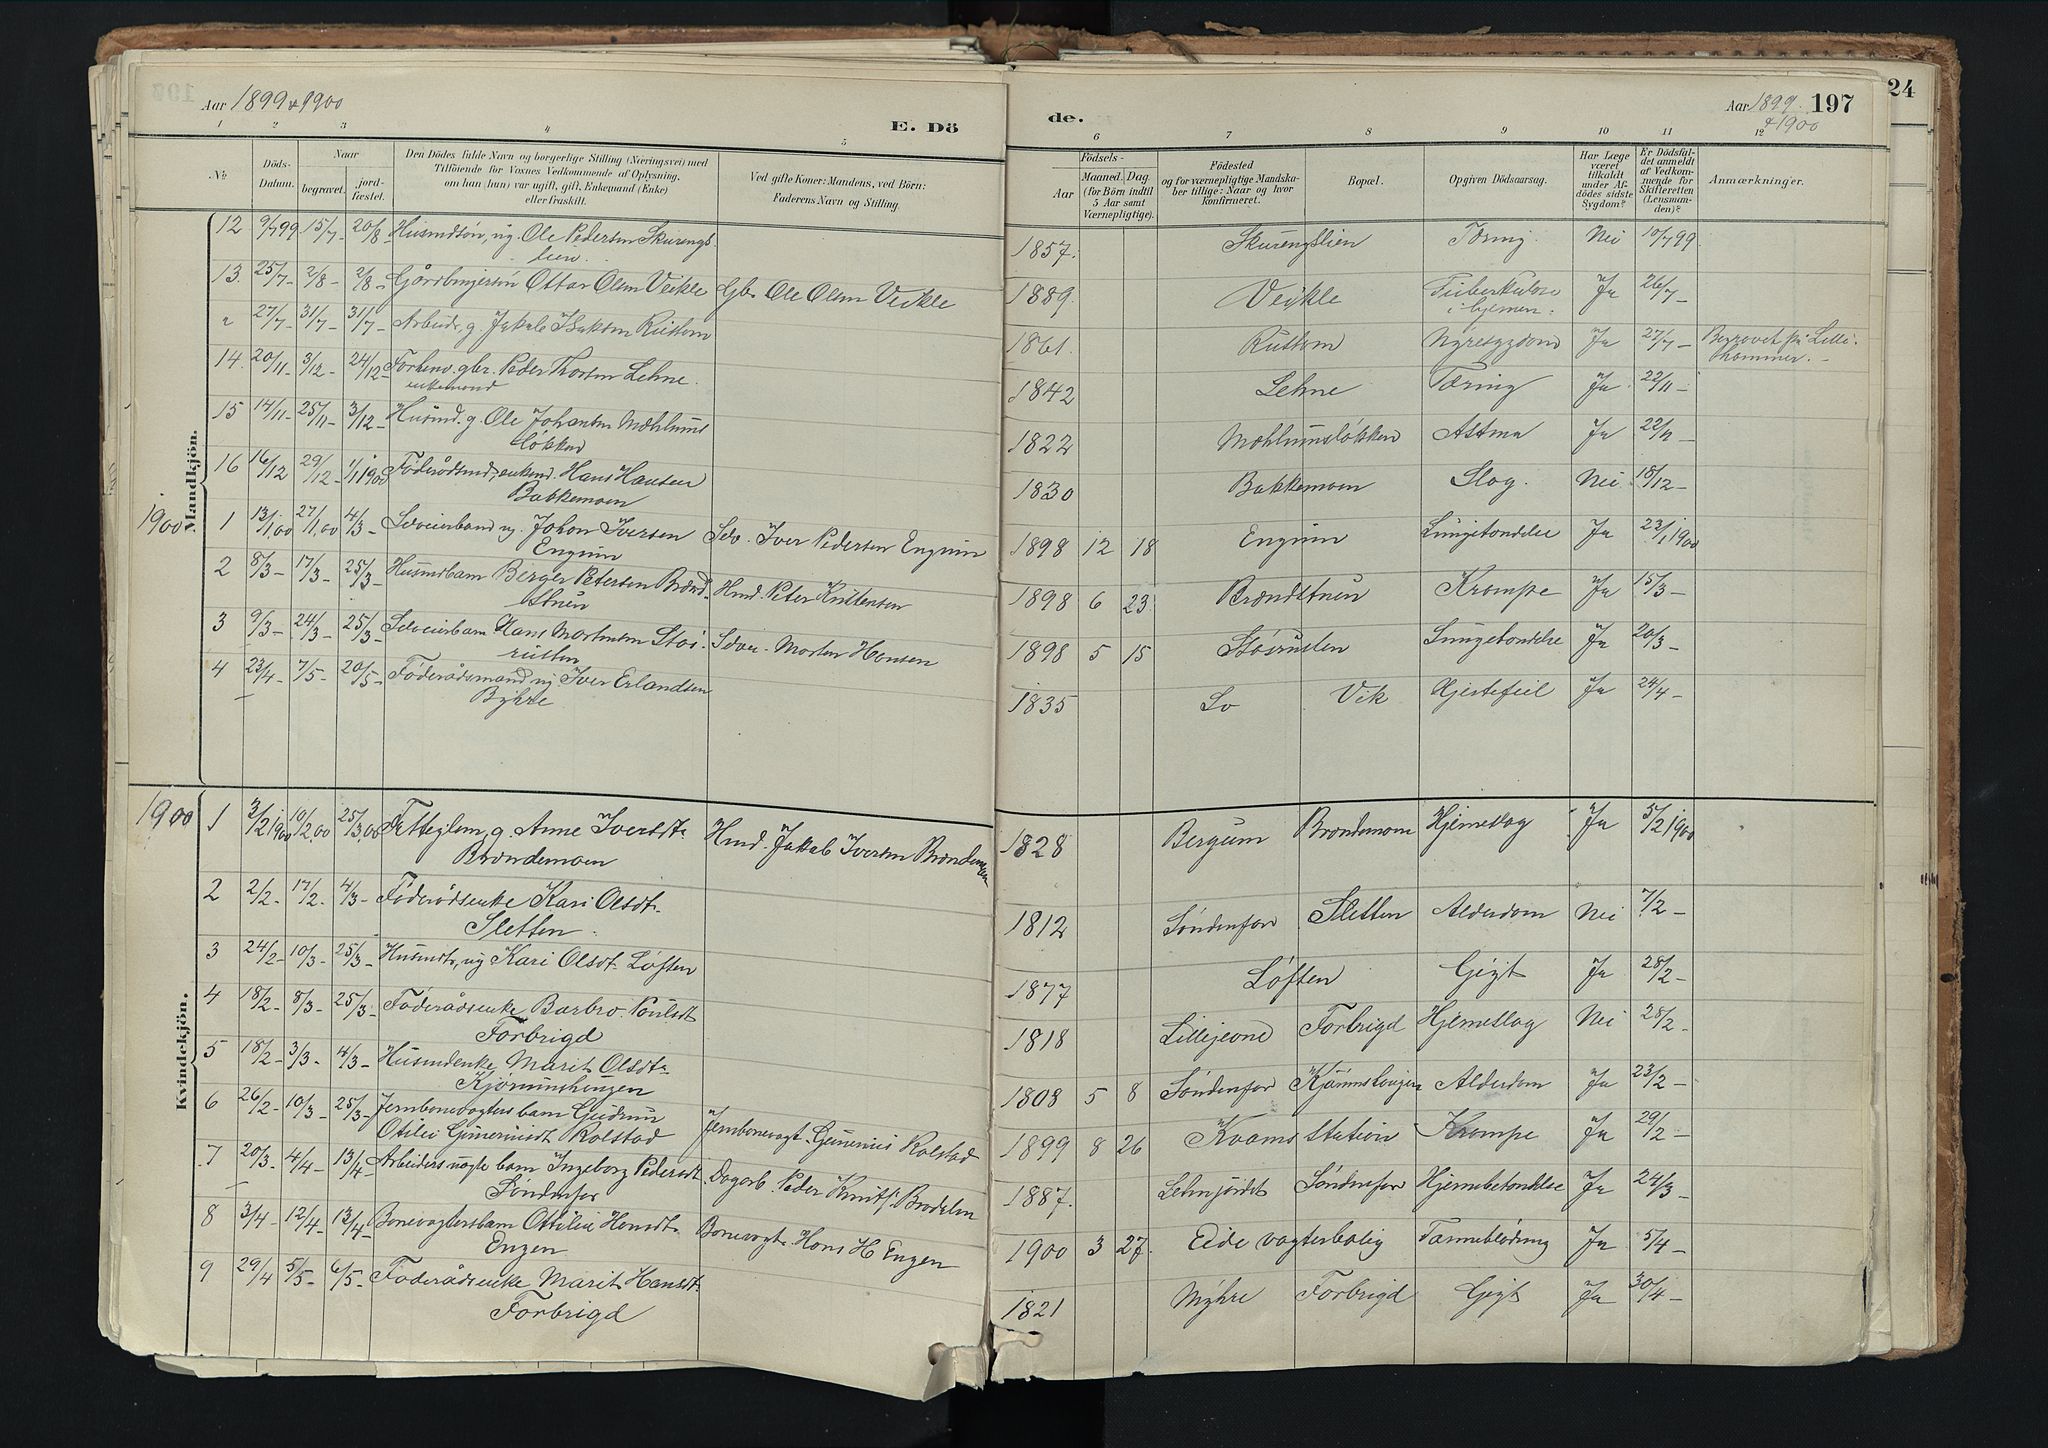 Aar 1899 & 1900
E. Dö
de.
Aar 1899 & 1900
197
24
1 2 3 4 5 6 7 8 9 10 11 12
No
Döds-Datum.
Naar
begravet.
jordfæstet.
Den Dödes fulde Navn og borgerlige Stilling (Næringsvei) med
Tilföiende for Voxnes Vedkommende af Oplysning,
om han (hun) var ugift, gift, Enkemand (Enke)
eller fraskilt.
Ved gifte Koner: Mandens, ved Börn:
Faderens Navn og Stilling.
Födsels-
Aar
Maaned. Dag
(for Börn indtil
5 Aar samt
Værnepligtige).
Födested
og for værnepligtige Mandska-
ber tillige: Naar og hvor
konfirmeret.
Bopæl.
Opgiven Dödsaarsag.
Har Læge
været
tilkaldt
under Af-
dödes sidste
Sygdom?
Er Dödsfal-
det anmeldt
af Vedkom-
mende for
Skifteretten
(Lensman-
den)?
Anmærkninger.
Mandkjön.
12 9/7 99 15/7 - 20/8 Husmdsøn, ug. Ole Pedersen Skurengs
lien. 1857. Skurengslien Tæring. Nei 10/7 99
13. 25/7 - 2/8 - 2/8 - Gårdbrugersøn Ottar Olsen Veikle Gbr Ole Olsen Veikle 1889. Veikle Tuberkulose
i hjernen. Ja 26/7 -
" 27/7 - 31/7 - 31/7 - Arbeids. g. Jakob Isaksen Rustom 1861. Rustom Nyresygdom Ja 27/7 - Begravet på Lille-
hammer. -
14. 20/11 - 3/12 - 24/12 - Forhenv. gbr. Peder Thorsen Lehne
enkemand 1842 Lehne Tæring Ja 22/11 -
15 14/11 - 25/11 - 3/12 - Husmd. g. Ole Johansen Mæhlums
løkken 1822 Mæhlumsløkken Astma Ja 22/11 -
16 16/12 29/12 - 1/1 1900 Føderådsmd, enkemd. Hans Hansen
Bakkemoen 1830 Bakkemoen Slag. Nei 18/12 -
1900 1 13/1 00 27/1 00 4/3 - Selveierbarn ug. Johan Iversen
Engum Selv. Iver Pedersen Engum 1898 12 18 Engum Lungebetændelse Ja 23/1 1900
2 8/3 - 17/3 - 25/3 - Husmdbarn Berger Petersen Brænd-
stuen Hmd. Peter Knudsen 1898 6 23. Brændstuen Krampe Ja 15/3 -
3 9/3 - 24/3 - 25/3 - Selveierbarn Hans Mortensen Stor-
rusten Selvei. Morten Hansen 1898 5 15 Storrusten Lungebetændelse Ja 20/3 -
4 23/4 - 7/5 - 20/5 - Føderådsmand ug Iver Erlandsen
Bykre 1835 Lo Vik Hjertefeil Ja 24/4 -
Kvindekjön.
1900 1 3/2 1900 10/2 00 25/3 00 Fattiglem, g. Anne Iversdtr
Brændemoen Hmd. Jakob Iversen Brændemoen 1828 Bergum Brændemoen Hjerneslag Ja 5/2 1900
2 2/2 - 17/2 - 4/3 - Føderådsenke Kari Olsdtr
Sletten. 1812 Søndenfor Sletten Alderdom Nei 7/2 -
3 24/2 - 10/3 - 25/3 - Husmdtr, ug Kari Olsdtr Løften 1877 Løften Gigt Ja 28/2 -
4 18/2 - 8/3 - 25/3 - Føderådsenke Barbro Poulsdtr
Forbrigd 1818 Forbrigd Hjerneslag Nei 28/2 -
5 18/2 - 3/3 - 4/3 - Husmdenke Marit Olsdtr
1808 5 8 Søndenfor Alderdom Ja 23/2 -
6 26/2 - 10/3 - 25/3 - Jernbanevogters barn Gudrun
Otilie Rolstad Jernbanevogt. Rolstad 1899 8 26 Kvams Station Krampe Ja 29/2 -
7 20/3 - 4/4 - 13/4 - Arbeiders uægte barn Ingeborg Pedersdtr
Søndenfor Dagarb. Peder 1887. Lehnjordet Søndenfor Hjernebetændelse Ja 24/3 -
8 3/4 - 12/4 - 13/4 - Banevogtersbarn Ottilie Hansdtr
Engen Banevogt. Hans H Engen 1900 3 27. Eide vogterbolig Ja 5/4 -
9 29/4 - 5/5 - 6/5 - Føderådsenke Marit Hansdtr
Forbrigd 1821 Myhre Forbrigd Gigt Ja 30/4 -